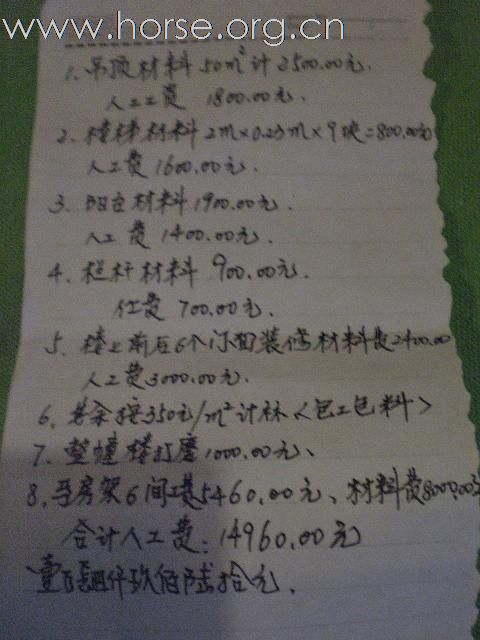 www.horse.org.cn
1. 吊顶材料 50m² 计 2500.00元.
人工工费 1800.00元.
2. 楼梯材料 2m×0.25m×9块=800.00元
人工费 1600.00元.
3. 阳台材料 1900.00元.
人工费 1400.00元.
4. 栏杆材料 900.00元.
工费 700.00元.
5. 楼上前后6个门面装修材料费2400.00
人工费3000.00元.
6. 其余按350元/m² 计〈包工包料〉
7. 整幢楼打磨1000.00元、
8. 马房架6间工费5460.00元、材料费8000.00元
合计人工费: 14960.00元
壹万肆仟玖佰陆拾元.